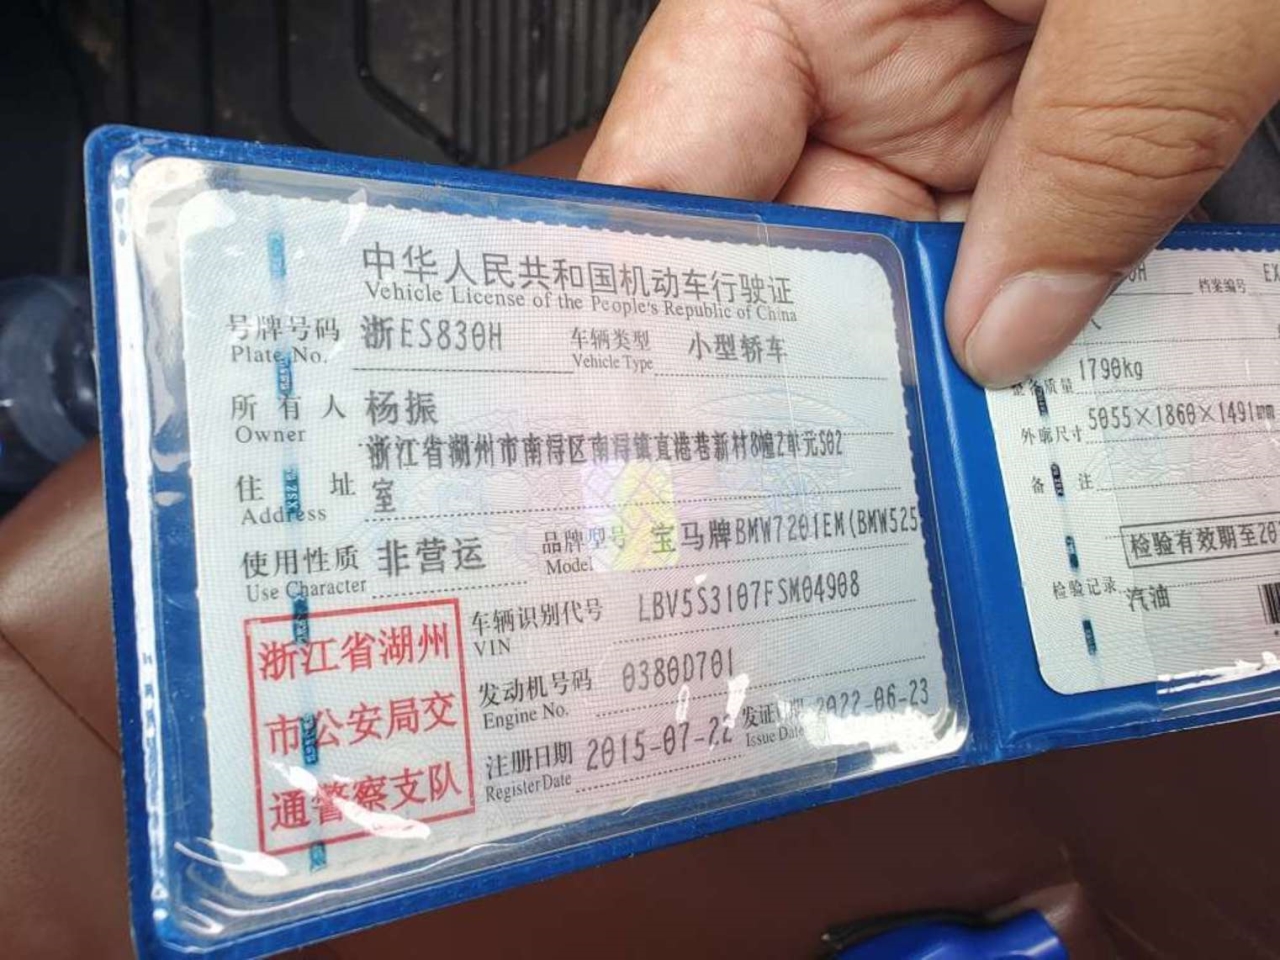 中华人民共和国机动车行驶证
Vehicle License of the People's Republic of China
号牌号码 浙ES830H 车辆类型 小型轿车
Plate No. Vehicle Type
所有人 杨振
Owner
住址 浙江省湖州市南浔区南浔镇直港巷新村8幢2单元502
室
Address
使用性质 非营运 品牌型号 宝马牌BMW7201EM(BMW525
Use Character Model
车辆识别代号 LBV5S3107FSM04908
VIN
发动机号码 0380D701
Engine No.
注册日期 2015-07-22 发证日期 2022-06-23
Register Date Issue Date
浙江省湖州
市公安局交
通警察支队
0H 档案编号
整备质量 1790kg
外廓尺寸 5055×1860×1491mm
备注
检验有效期至20
检验记录
汽油